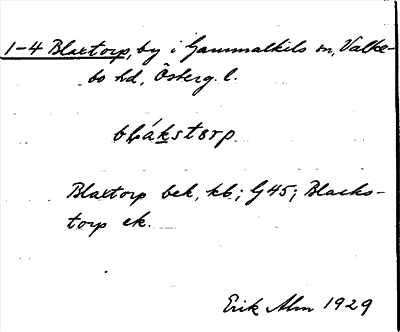 1-4 Blaxtorp, by i Gammalkils sn, Valke-
bo hd, Österg. l.
blákstorp.
Blaxtorp bek, kb.; G 45; Blacks-
torp ek.
Erik Alm 1929